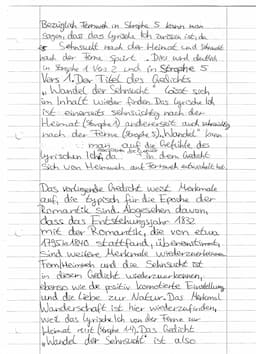 Bezüglich Fernweh in Strophe 5 kann man
sagen, dass das lyrische Ich zerissen ist, da
es Sehnsucht nach der Heimat und
nach der Ferne spürt. Dies wird deutlich
in Strophe 1 Vers 2 und in Strophe 5
Vers 1. Der Titel des Gedichts
„Wandel der Sehnsucht" lässt sich
im Inhalt wieder finden. Das lyrische Ich
ist einerseits sehnsüchtig nach der
Heimat (Strophe 1) andererseits auch sehnsüchtig
nach der Ferne (Strophe 5). „Wandel" kann
man auf die Gefühle des
lyrischen Ich, da in dem Gedicht
sich von Heimweh auf Fernweh
Das vorliegende Gedicht weist Merkmale
auf, die typisch für die Epoche der
Romantik sind. Abgesehen davon,
dass das Entstehungsjahr 1832
mit der Romantik, die von etwa
1795 bis 1840 stattfand, übereinstimmt,
sind weitere Merkmale wiederzuerkennen.
Fern/Heimweh und die Sehnsucht ist
in diesem Gedicht wiederzuerkennen,
ebenso wie die positiv konnotierte Einstellung
und die Liebe zur Natur. Das Merkmal
Wanderschaft ist hier wiederzufinden,
weil das lyrische Ich von der Ferne zur
Heimat reist (Strophe 1+). Das Gedicht
„Wandel der Sehnsucht" ist also